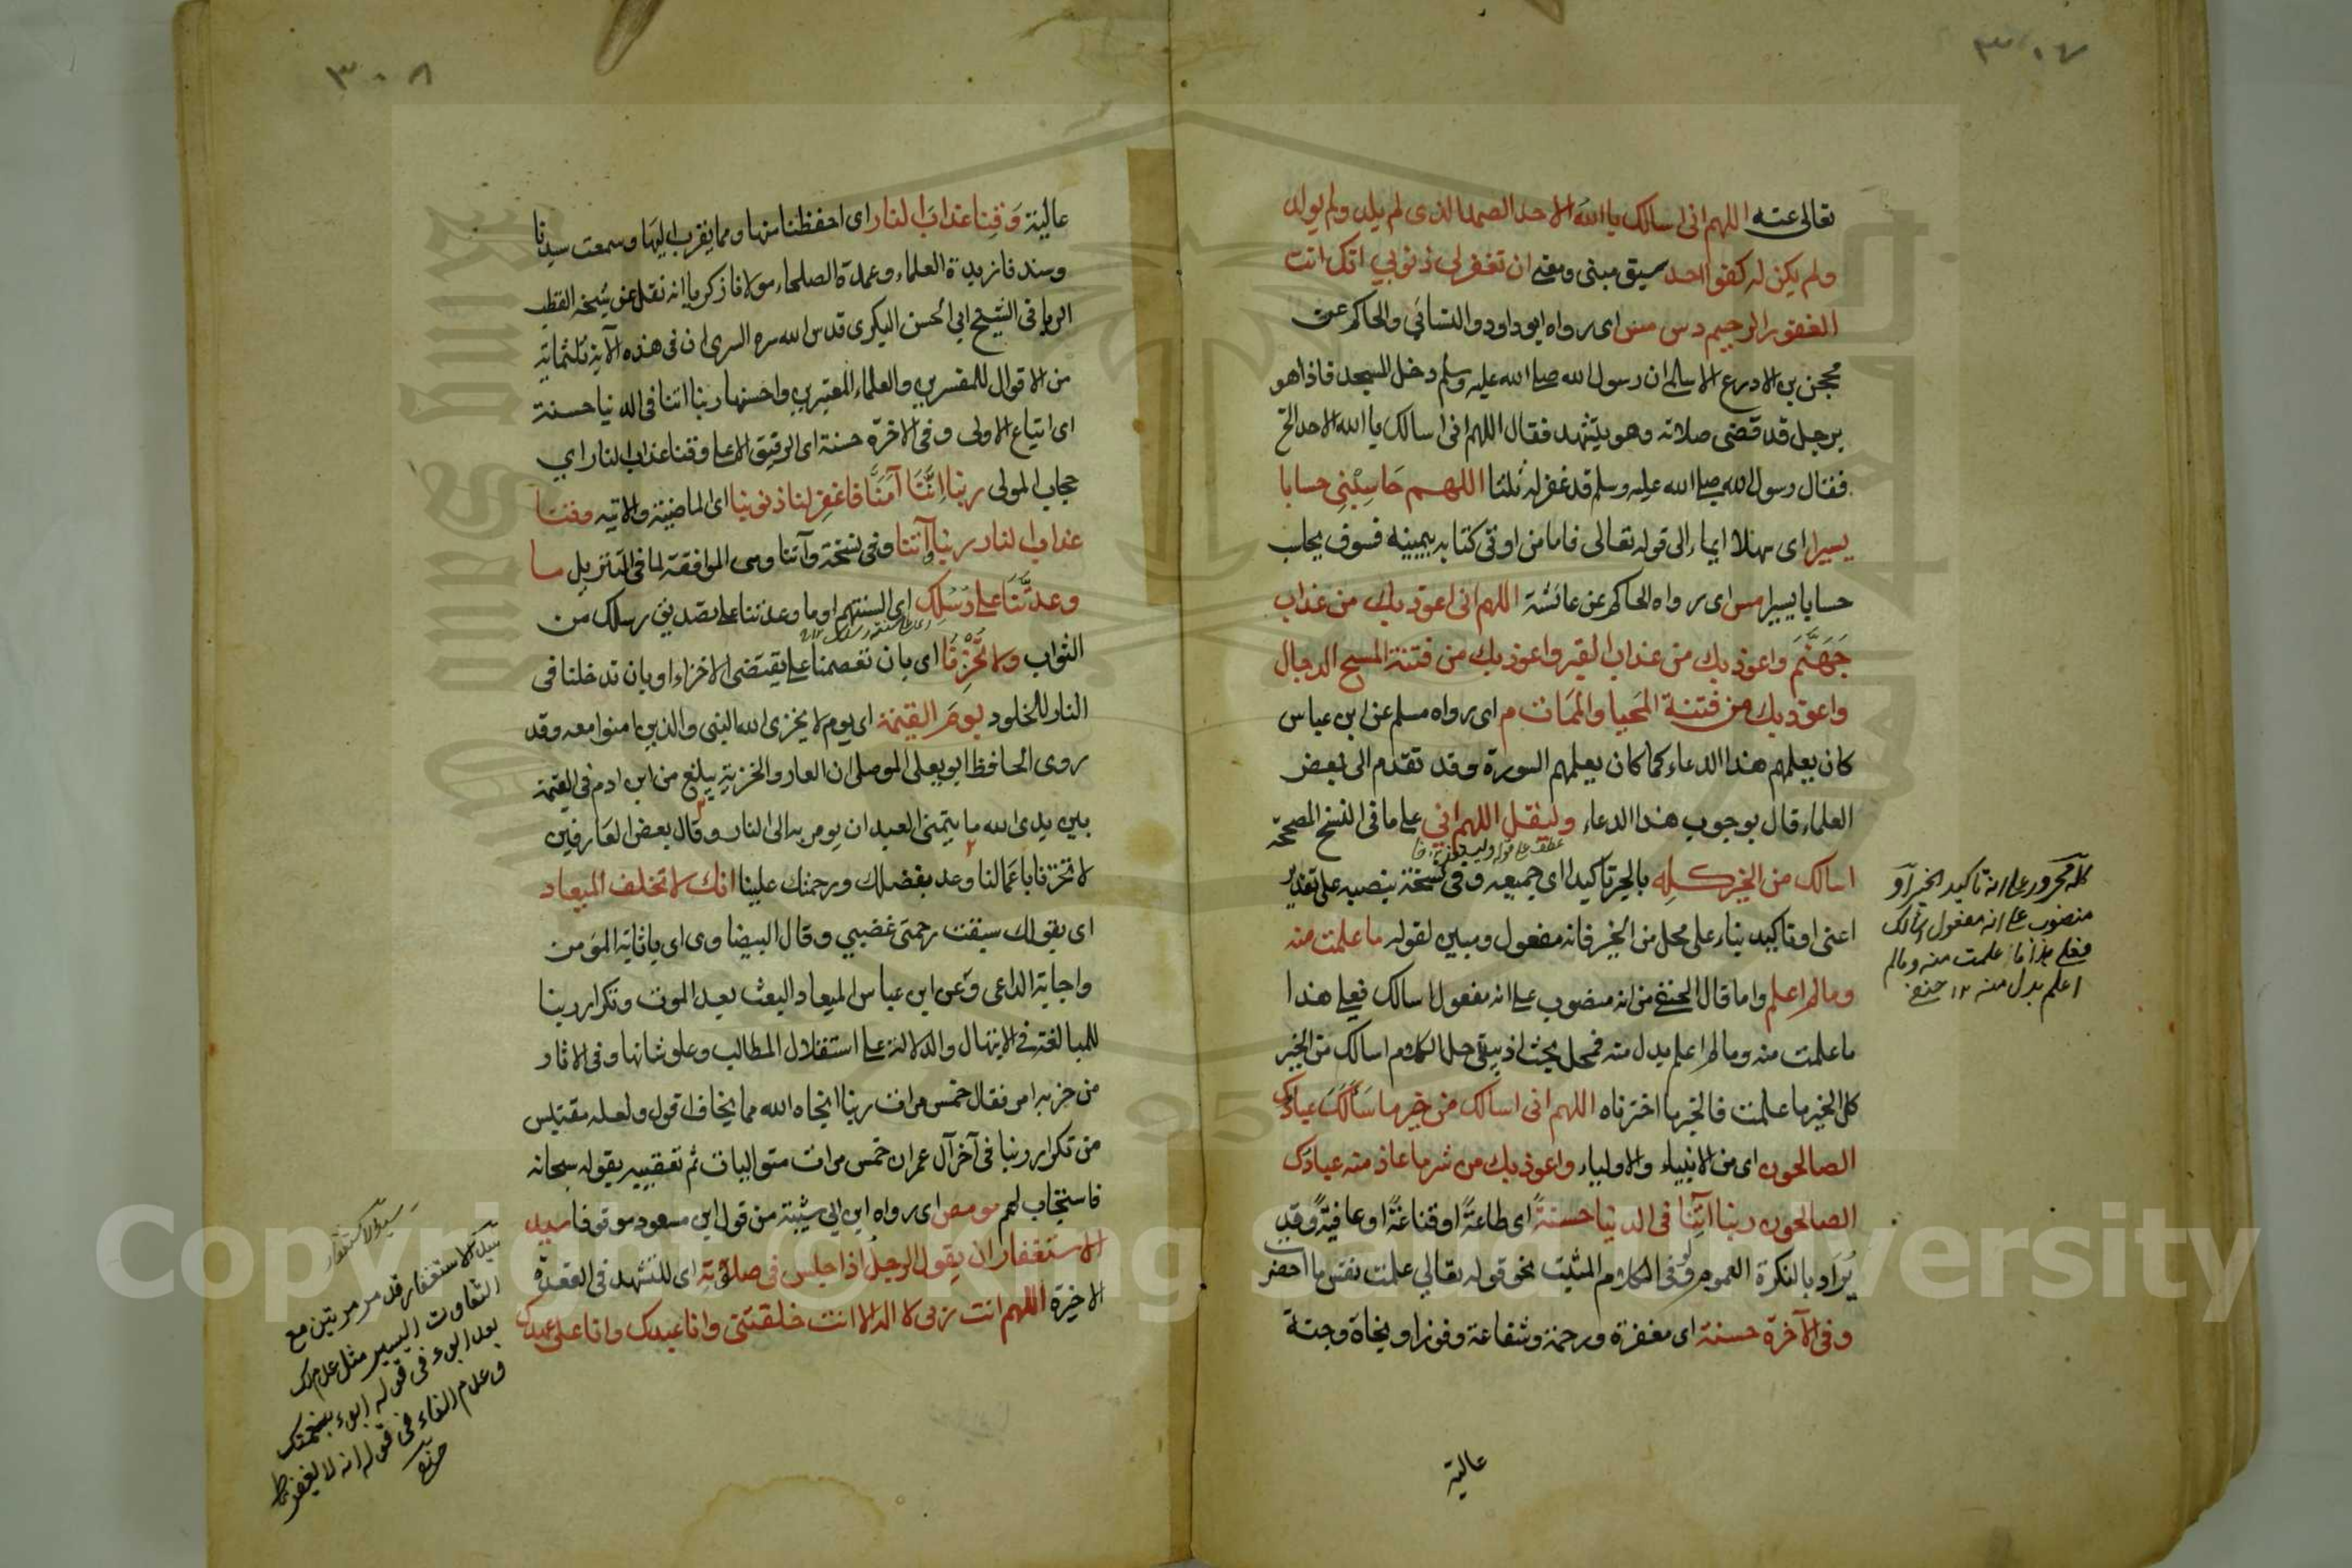 ٣٠٧
تعالى عنه اللهم انى اسالك يا الله الاحد الصمد الذى لم يلد ولم يولد
ولم يكن له كفوا احد سبق مبنى ومعنى ان تغفر لى ذنوبي انك انت
الغفور الرحيم د س مس اى رواه ابو داود والنسائي والحاكم عن
محجن بن الادرع الاسلمى ان رسول الله صلى الله عليه وسلم دخل المسجد فاذا هو
برجل قد قضى صلاته وهو يتشهد فقال اللهم انى اسالك يا الله الاحد الخ
فقال رسول الله صلى الله عليه وسلم قد غفر له ثلثا اللهم حَاسِبْنِى حسابا
يسيرا اى سهلا ايماء الى قوله تعالى فاما من اوتى كتابه بيمينه فسوف يحاسب
حسابا يسيرا مس اى رواه الحاكم عن عائشة اللهم انى اعوذ بك من عذاب
جَهَنَّمَ واعوذ بك من عذاب القبر واعوذ بك من فتنة المسيح الدجال
واعوذ بك من فتنة المَحيا والمَمَات م اى رواه مسلم عن ابن عباس
كان يعلمهم هذا الدعاء كما كان يعلمهم السورة وقد تقدم الى بعض
العلماء قال بوجوب هذا الدعاء وليقل اللهم اني على ما فى النسخ المصححة
عطف على قوله وليتعوذ
اسالك من الخير كلِه بالجر تاكيد اى جميعه وفى نسخة بنصبه على تقدير
اعنى او تاكيد بناء على محل من الخير فانه مفعول ومبين لقوله ما علمت منه
وما لم اعلم واما قال الحنفى من انه منصوب على انه مفعول اسالك فعلى هذا
ما علمت منه وما لم اعلم بدل منه فمحل بحث اذ يبقى حل الكلام اسالك من الخير
كل الخير ما علمت فالخير ما اخترناه اللهم انى اسالك من خير ما سَأَلَكَ عبادك
الصالحون اى من الانبياء والاولياء واعوذ بك من شر ما عاذ منه عبادك
الصالحون ربنا آتِنَا فى الدنيا حسنةً اى طاعةً او قناعَةً او عافيةً وقد
يُرَاد بالنكرة العموم ولو فى الكلام المثبت نحو قوله تعالي علمت نفس ما احضر
وفى الآخرة حسنة اى مغفرة ورحمة وشفاعة وفوزا ونجاة وجنة
عالية
كله مجرور على انه تاكيد الخير او
منصوب على انه مفعول اسالك
فعلى هذا ما علمت منه وما لم
اعلم بدل منه ١٢ حنفى
٣٠٨
عالية وَقِنا عذابَ النار اى احفظنا منها ومما يقرب اليها وسمعت سيدنا
وسندنا زبدة العلماء وعمدة الصلحاء مولانا زكريا انه نقل عن شيخه القطب
الربانى الشيخ ابي الحسن البكرى قدس الله سره السرى ان فى هذه الآية ثلثمائة
من الاقوال للمفسرين والعلماء المعتبرين واحسنها ربنا اتنا فى الدنيا حسنة
اى اتباع الاولى وفى الاخرة حسنة اى الرفيق الاعلى وقنا عذاب النار اي
حجاب المولى ربنا إنَّنَا آمَنَّا فاغفِر لنا ذنوبنا اى الماضية والاتيه وقنا
عذاب النار ربنا آتنا وفى نسخة وآتنا وهى الموافقة لما فى التنزيل ما
وعدتَّنَا على رُسُلِك اى السنتهم او ما وعدتنا على تصديق رسلك من
الثواب ولا تُخْزِنَا اى بان تعصمنا عما يقتضى الاخزاء او بان تدخلنا فى
النار للخلود يومَ القيمة اى يوم لا يخزى الله النبى والذين امنوا معه وقد
روى الحافظ ابو يعلى الموصلى ان العار والخزية يبلغ من ابن ادم فى القيمة
بين يدى الله ما يتمنى العبد ان يومر به الى النار وقال بعض العارفين
لا تخزنا باعمالنا وعد بفضلك ورحمتك علينا انك لا تخلف الميعاد
اى بقولك سبقت رحمتى غضبي وقال البيضاوى اى باثابة المؤمن
واجابة الداعى وعن ابن عباس الميعاد البعث بعد الموت وتكرار ربنا
للمبالغة فى الابتهال والدلالة على استقلال المطالب وعلو شانها وفى الاثار
من حزبه امر فقال خمس مرات ربنا انجاه الله مما يخاف اقول ولعله مقتبس
من تكرار ربنا فى آخر آل عمران خمس مرات متواليات ثم تعقيبه بقوله سبحانه
فاستجاب لهم مو مص اى رواه ابن ابي شيبة من قول ابن مسعود موقوفا سيد
الاستغفار ان يقول الرجل اذا جلس فى صلاته اى للتشهد فى القعدة
الاخيرة اللهم انت ربى لا اله الا انت خلقتنى وانا عبدك وانا على عهدك
سيد الاستغفار
سيد الاستغفار قد مر مرتين مع
التفاوت اليسير مثل عدم لك
بعد ابوء فى قوله ابوء بنعمتك
وعدم الفاء فى قوله انه لا يغفر
حنفى
Copyright © King Saud University